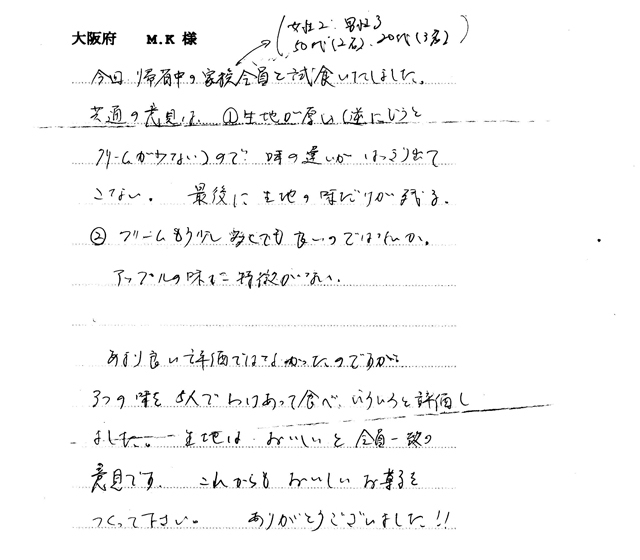 大阪府 M.K 様
(女性2 男性3
50代(2名)、20代(3名))
今回 帰省中の家族全員と試食いたしました。
共通の意見は、①生地が厚い(逆にいうと
クリームが少ない)ので 味の違いが はっきり出て
こない。 最後に 生地の味だけが残る。
② クリームもう少し 多くても 良いのではないか。
アップルの味に 特徴がない。
あまり良い評価ではなかったのですが、
3つの味を 5人で わけあって食べ、いろいろと評価し
ました。 生地は おいしいと 全員一致の
意見です。 これからも おいしい お菓子を
つくって下さい。 ありがとうございました!!